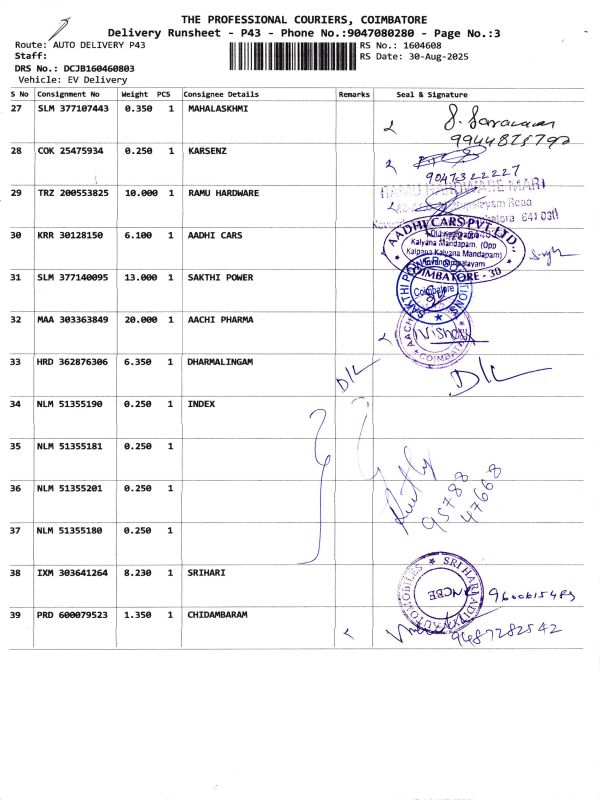 THE PROFESSIONAL COURIERS, COIMBATORE
Delivery Runsheet - P43 - Phone No.:9047080280 - Page No.:3
Route: AUTO DELIVERY P43
RS No.: 1604608
Staff:
RS Date: 30-Aug-2025
DRS No.: DCJB160460803
Vehicle: EV Delivery
S No Consignment No Weight PCS Consignee Details Remarks Seal & Signature
27 SLM 377107443 0.350 1 MAHALASKHMI
28 COK 25475934 0.250 1 KARSENZ
9047322227
29 TRZ 200553825 10.000 1 RAMU HARDWARE
30 KRR 30128150 6.100 1 AADHI CARS
AADHI CARS PVT LTD.,
Kalyana Mandapam. (Opp
Kalpana Kalyana Mandapam)
COIMBATORE - 30
31 SLM 377140095 13.000 1 SAKTHI POWER
SAKTHI POWER SOLUTIONS
Coimbatore
32 MAA 303363849 20.000 1 AACHI PHARMA
AACHI
COIMBATORE
33 HRD 362876306 6.350 1 DHARMALINGAM
34 NLM 51355190 0.250 1 INDEX
35 NLM 51355181 0.250 1
36 NLM 51355201 0.250 1
95788
47668
37 NLM 51355180 0.250 1
38 IXM 303641264 8.230 1 SRIHARI
SRI HARI ADITYA AUTOMOBILES
NCBE
39 PRD 600079523 1.350 1 CHIDAMBARAM
9487282542